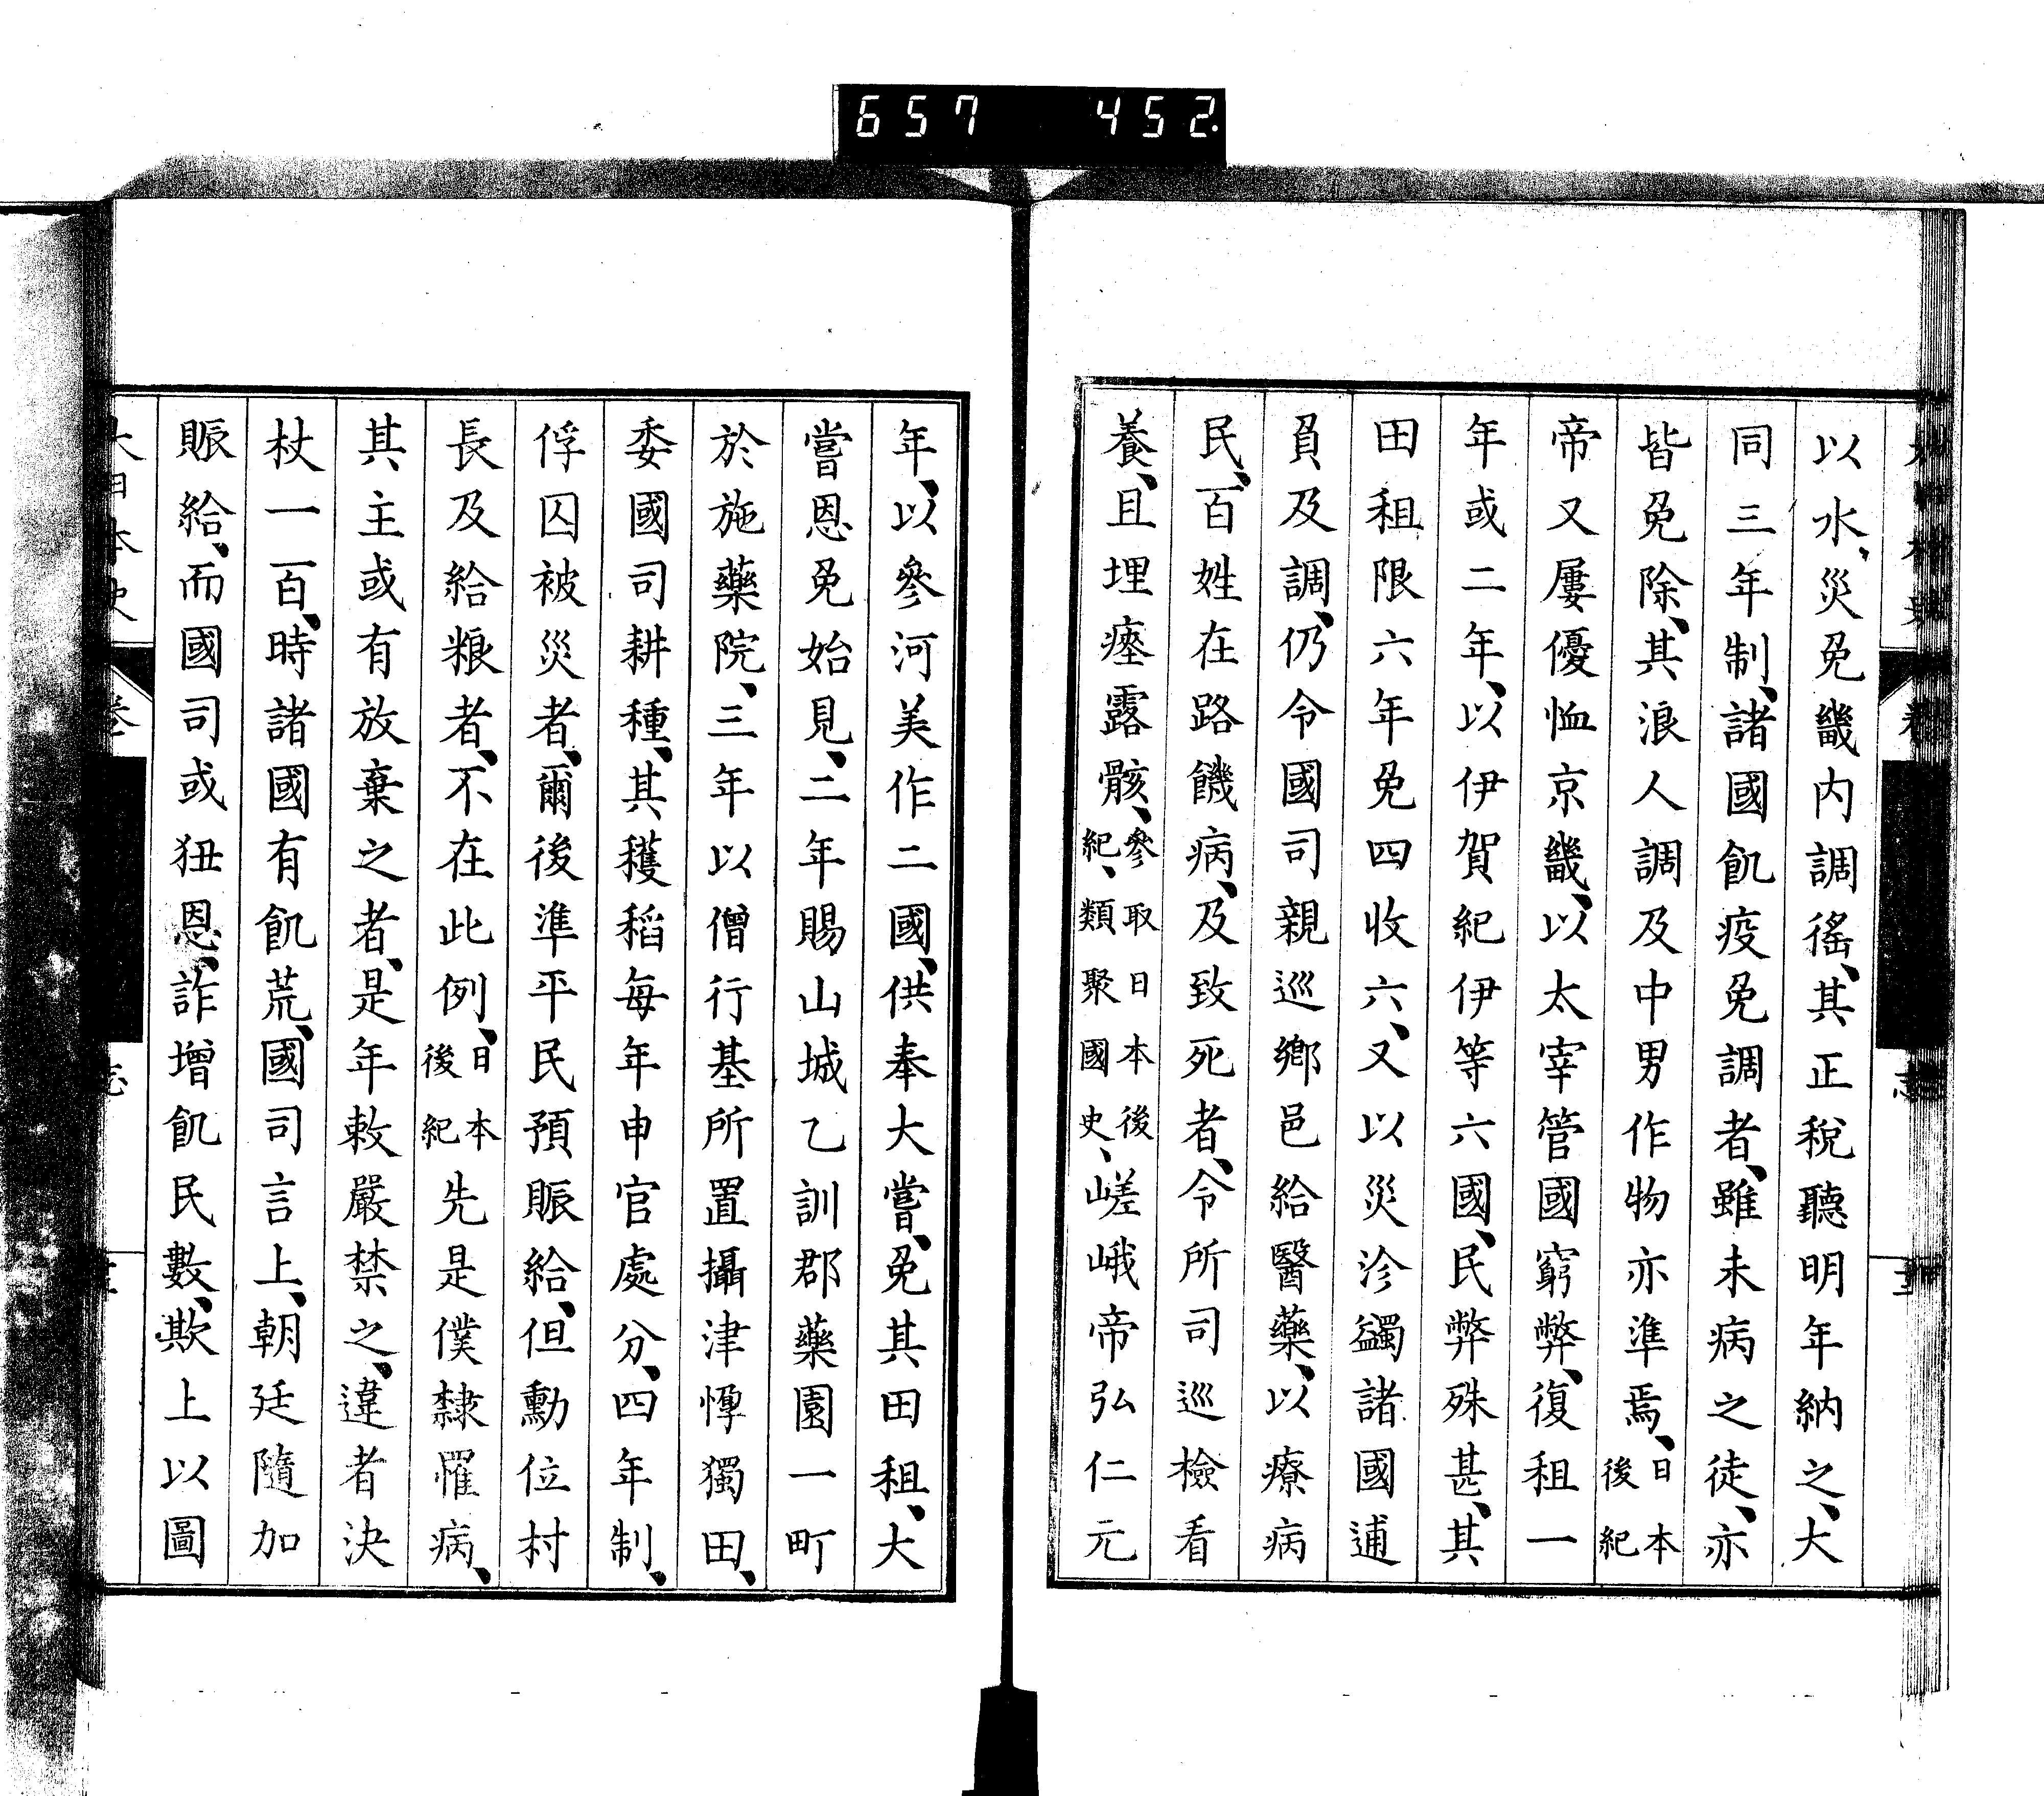 657 452.
以水災免畿内調徭、其正稅聽明年納之、大
同三年制、諸國飢疫免調者、雖未病之徒、亦
皆免除、其浪人調及中男作物亦準焉、日本後紀
帝又屢優恤京畿、以太宰管國窮弊、復租一
年或二年、以伊賀紀伊等六國、民弊殊甚、其
田租限六年免四收六、又以災沴蠲諸國逋
負及調、仍令國司親巡鄉邑給醫藥、以療病
民、百姓在路飢病、及致死者、令所司巡檢看
養、且埋瘞露骸、參取日本後紀、類聚國史、嵯峨帝弘仁元
年、以參河美作二國、供奉大嘗、免其田租、大
嘗恩免始見、二年賜山城乙訓郡藥園一町
於施藥院、三年以僧行基所置攝津惸獨田、
委國司耕種、其穫稻每年申官處分、四年制、
俘囚被災者、爾後準平民預賑給、但勳位村
長及給粮者、不在此例、日本後紀先是僕隸罹病、
其主或有放棄之者、是年敕嚴禁之、違者決
杖一百、時諸國有飢荒、國司言上、朝廷隨加
賑給、而國司或狃恩、詐增飢民數、欺上以圖
大日本史 卷 志